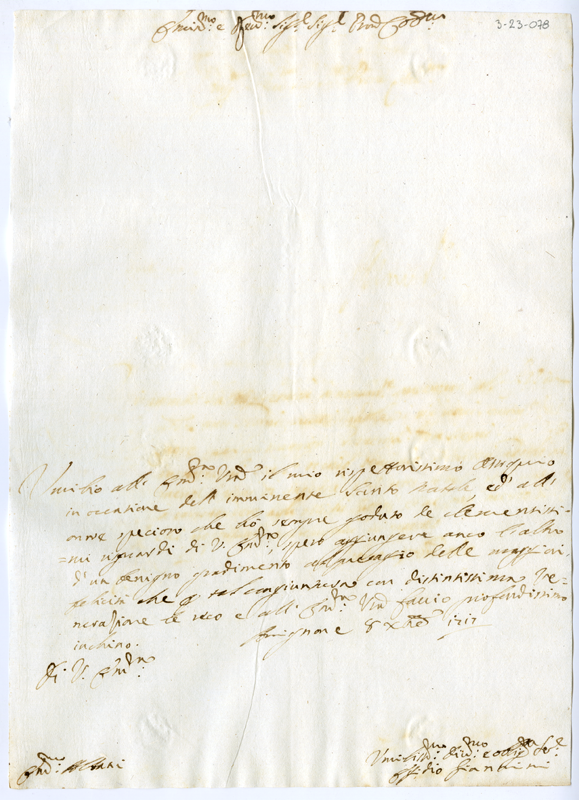 3-23-078
Emin.mo e Rev.mo Sig.r Sig.r Pron Col.mo
Umilio all' Em.za Vra il mio rispettosissimo ossequio
in occasione dell' imminente Santo Natale, ed' all
onore specioso che hò sempre goduto de clementissi-
=mi riguardi di V. Em.za, spero aggiungere anco l'altro
d'un benigno gradimento all' presagio delle maggiori
felicità che con distintissima Ve-
nerazione le reco e all' Em.za Vra faccio profondissimo
inchino. Avignone 8 Xbre 1717
Di V. Em.za
Em.mo Albani
Umiliss.mo Div.mo e obblig.mo Ser.e